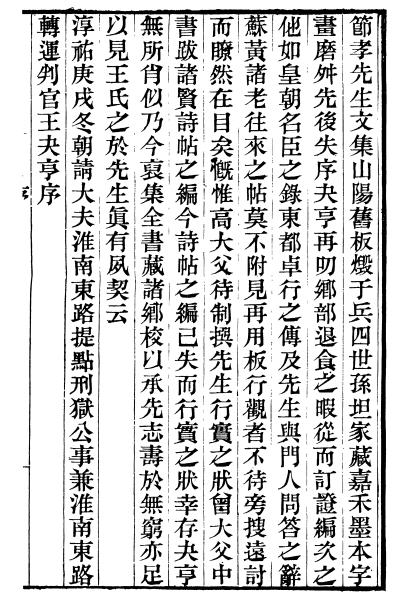 節孝先生文集山陽舊板燬于兵四世孫坦家藏嘉禾墨本字
畫磨舛先後失序夬亨再叨鄉部退食之暇從而訂證編次之
他如皇朝名臣之錄東都卓行之傳及先生與門人問答之辭
蘇黃諸老往來之帖莫不附見再用板行觀者不待旁搜遠討
而瞭然在目矣慨惟高大父待制撰先生行實之狀曾大父中
書跋諸賢詩帖之編今詩帖之編已失而行實之狀幸存夬亨
無所肖似乃今裒集全書藏諸鄉校以承先志壽於無窮亦足
以見王氏之於先生眞有夙契云
淳祐庚戌冬朝請大夫淮南東路提點刑獄公事兼淮南東路
轉運判官王夬亨序
序